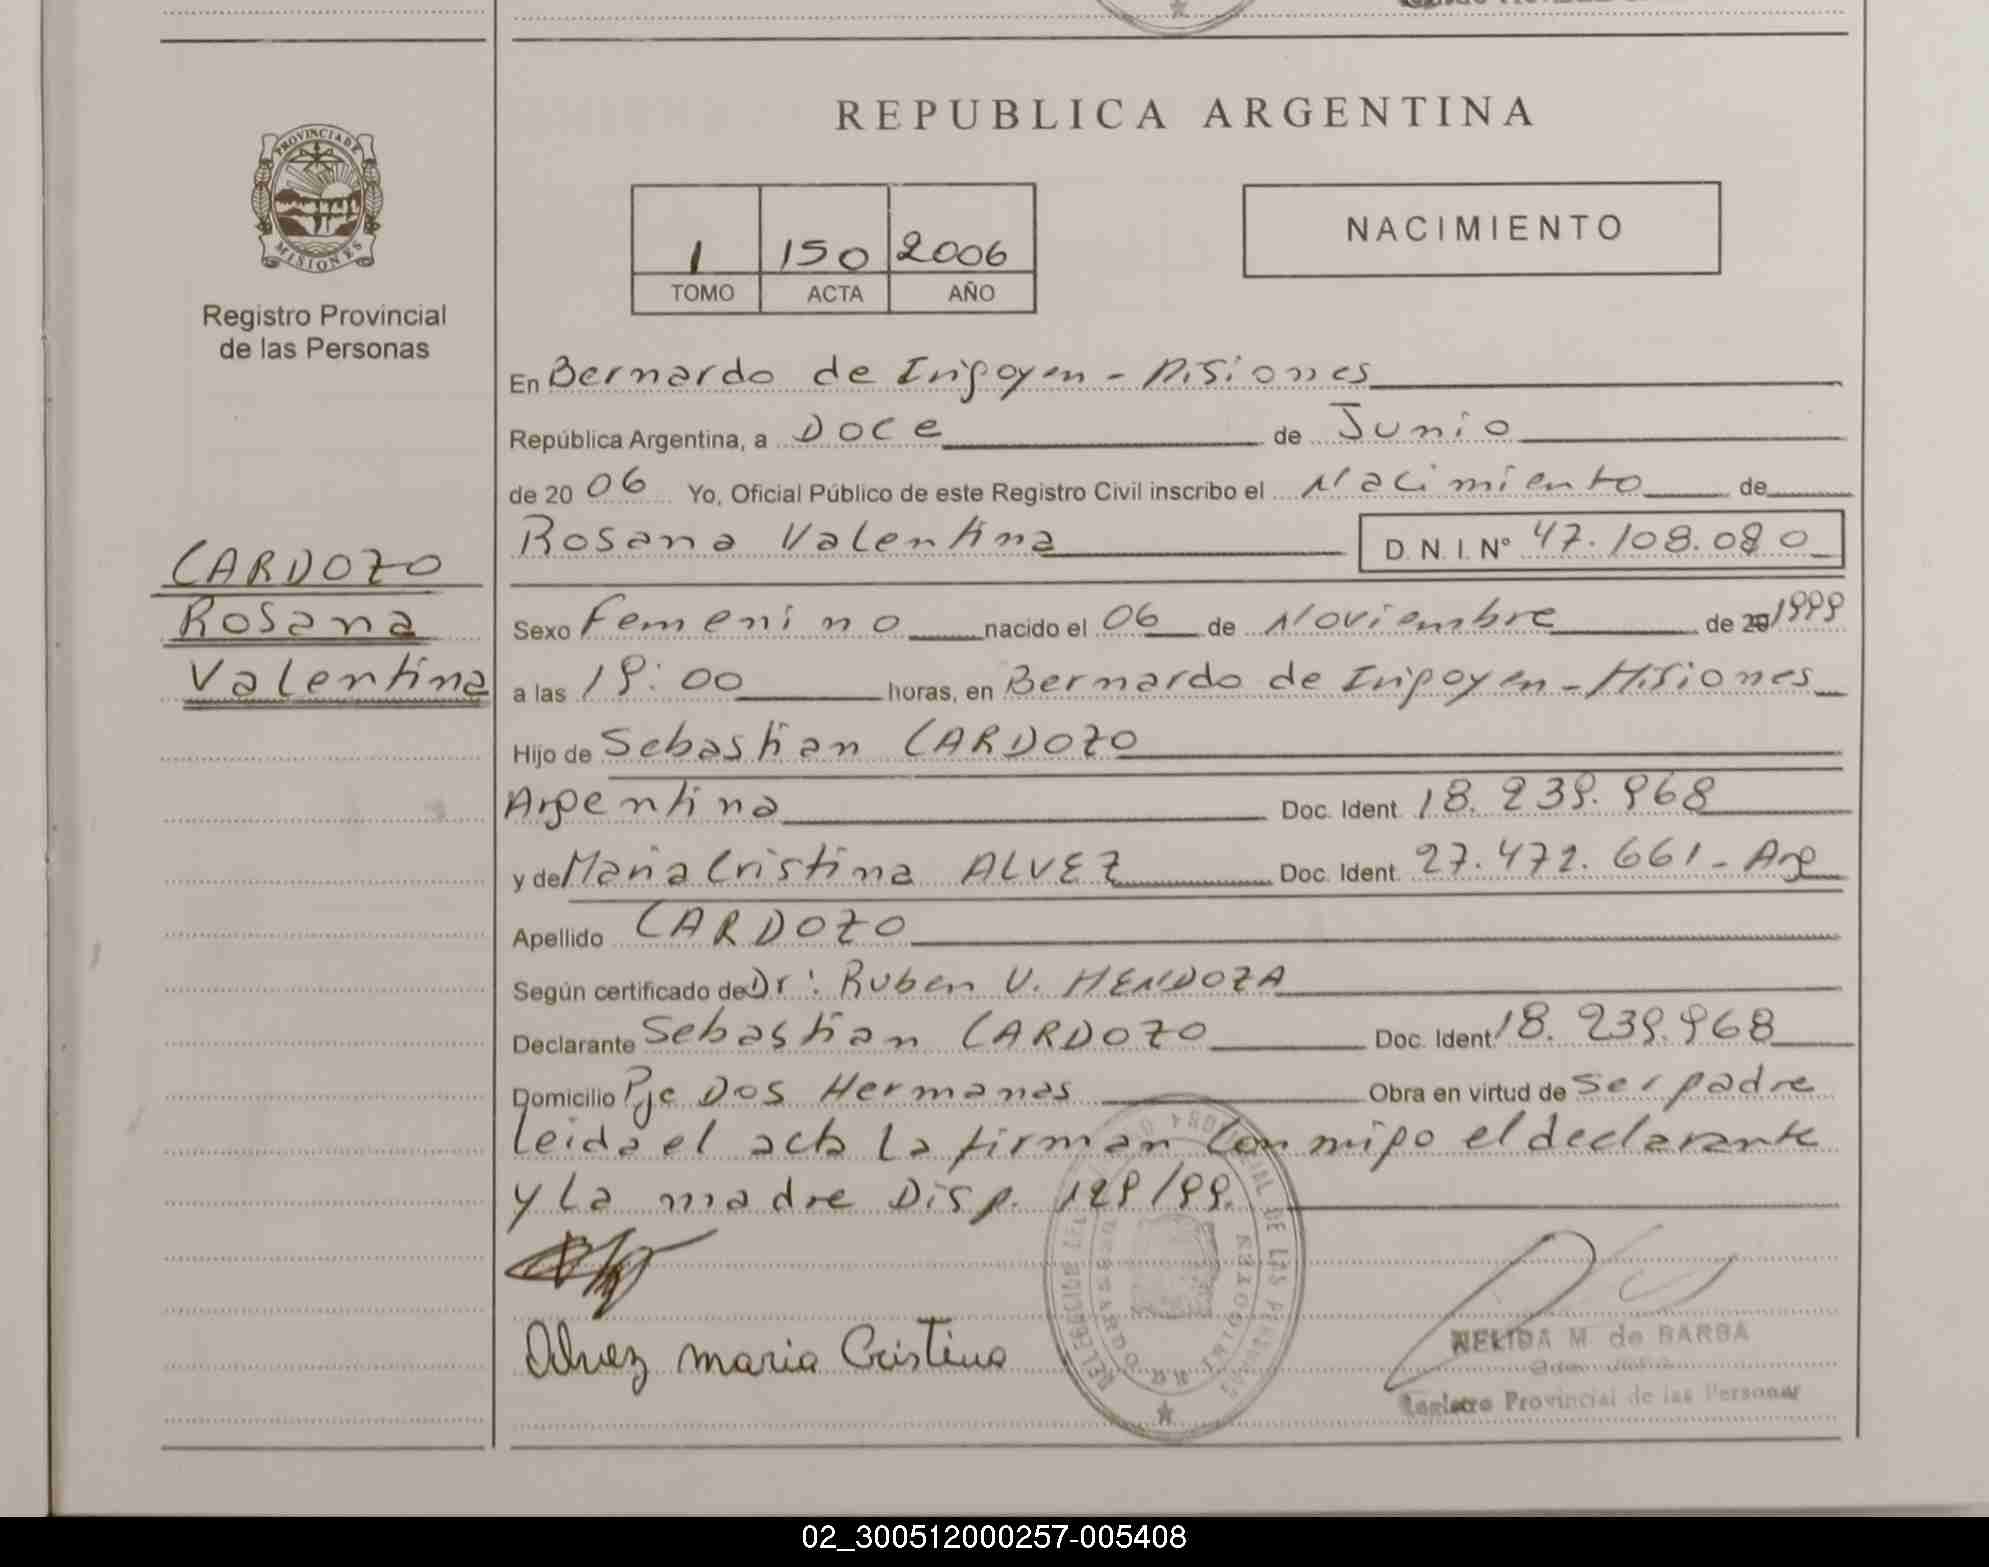 REPUBLICA ARGENTINA
PROVINCIA DE
MISIONES
Registro Provincial
de las Personas
1 150 2006
TOMO ACTA AÑO
NACIMIENTO
En Bernardo de Irigoyen - Misiones
República Argentina, a Doce de Junio
de 20 06 Yo, Oficial Público de este Registro Civil inscribo el Nacimiento de
Rosana Valentina D. N. I. Nº 47.108.080
CARDOZO
Rosana
Valentina
Sexo Femenino nacido el 06 de Noviembre de 20 1999
a las 19:00 horas, en Bernardo de Irigoyen - Misiones
Hijo de Sebastian CARDOZO
Argentina Doc. Ident. 18.239.968
y de Maria Cristina ALVEZ Doc. Ident. 27.472.661 - Arg
Apellido CARDOZO
Según certificado de Dr: Ruben V. MENDOZA
Declarante Sebastian CARDOZO Doc. Ident. 18.239.968
Domicilio Pje Dos Hermanas Obra en virtud de Ser padre
leida el acta La firman Con migo el declarante
y La madre Disp. 129/99.
Alvez maria Cristina
NELIDA M. de BARBA
Registro Provincial de las Personas
02_300512000257-005408